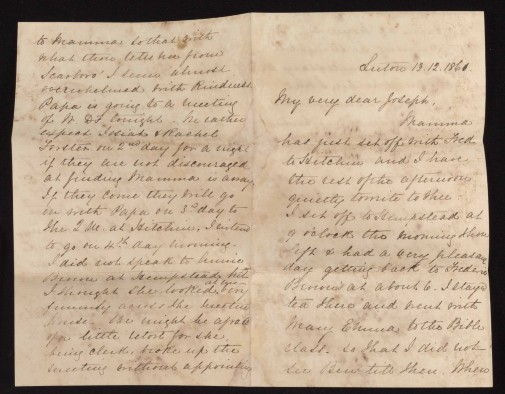 to Mamma so that with
what thine tells me from
Scarbro' I seem almost
overwhelmed with kindness
Papa is going to a meeting
of tonight. We rather
expect Josiah & Rachel
Forster on 2nd day for a night
if they are not discouraged
at finding Mamma is away
If they come they will go
on with Papa on 3rd day to
the 2. M. at Hitchin, I intend
to go on 4th day morning.
I did not speak to
Brown at Hempstead, but
I thought she looked at
across the meeting
house. She might be afraid
of a little retort for she
being clerk, broke up the
meeting without appointing
Luton 13.12.186
My very dear Joseph,
Mamma
has just set off with Fred
to Hitchin and I have
the rest of the afternoon
quietly to write to thee.
I set off to Hempstead at
9 o'clock the morning thou
left & had a very pleasant
day getting back to Frederic
Brown's at about 6. I stayed
tea there and went with
Mary Emma to the Bible
class. so that I did not
see till then. When